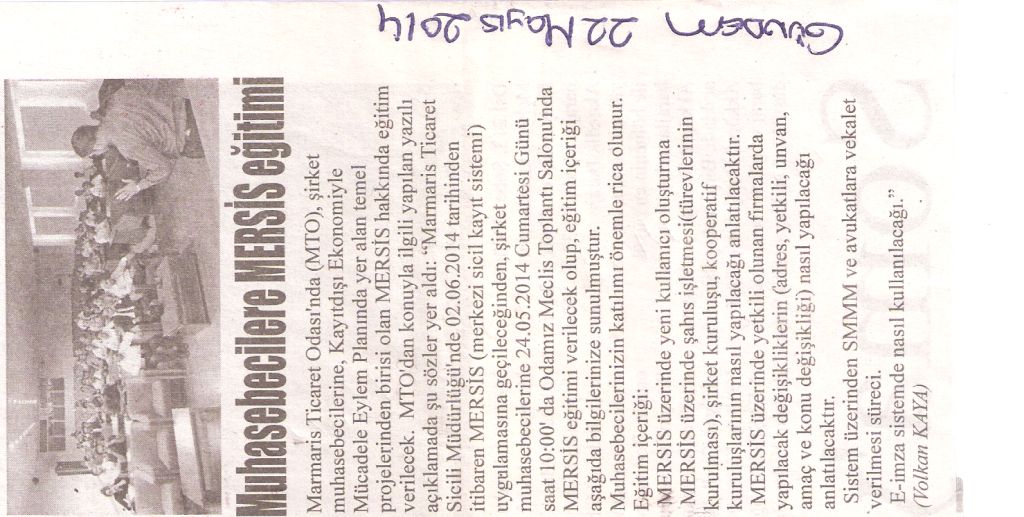 GÜNDEM 22 Mayıs 2014
Muhasebecilere MERSİS eğitimi
Marmaris Ticaret Odası'nda (MTO), şirket
muhasebecilerine, Kayıtdışı Ekonomiyle
Mücadele Eylem Planında yer alan temel
projelerinden birisi olan MERSİS hakkında eğitim
verilecek. MTO'dan konuyla ilgili yapılan yazılı
açıklamada şu sözler yer aldı: “Marmaris Ticaret
Sicili Müdürlüğü'nde 02.06.2014 tarihinden
itibaren MERSİS (merkezi sicil kayıt sistemi)
uygulamasına geçileceğinden, şirket
muhasebecilerine 24.05.2014 Cumartesi Günü
saat 10:00' da Odamız Meclis Toplantı Salonu'nda
MERSİS eğitimi verilecek olup, eğitim içeriği
aşağıda bilgilerinize sunulmuştur.
Muhasebecilerinizin katılımı önemle rica olunur.
Eğitim içeriği:
MERSİS üzerinde yeni kullanıcı oluşturma
MERSİS üzerinde şahıs işletmesi(türevlerinin
kurulması), şirket kuruluşu, kooperatif
kuruluşlarının nasıl yapılacağı anlatılacaktır.
MERSİS üzerinde yetkili olunan firmalarda
yapılacak değişikliklerin (adres, yetkili, unvan,
amaç ve konu değişikliği) nasıl yapılacağı
anlatılacaktır.
Sistem üzerinden SMMM ve avukatlara vekalet
verilmesi süreci.
E-imza sistemde nasıl kullanılacağı.”
(Volkan KAYA)